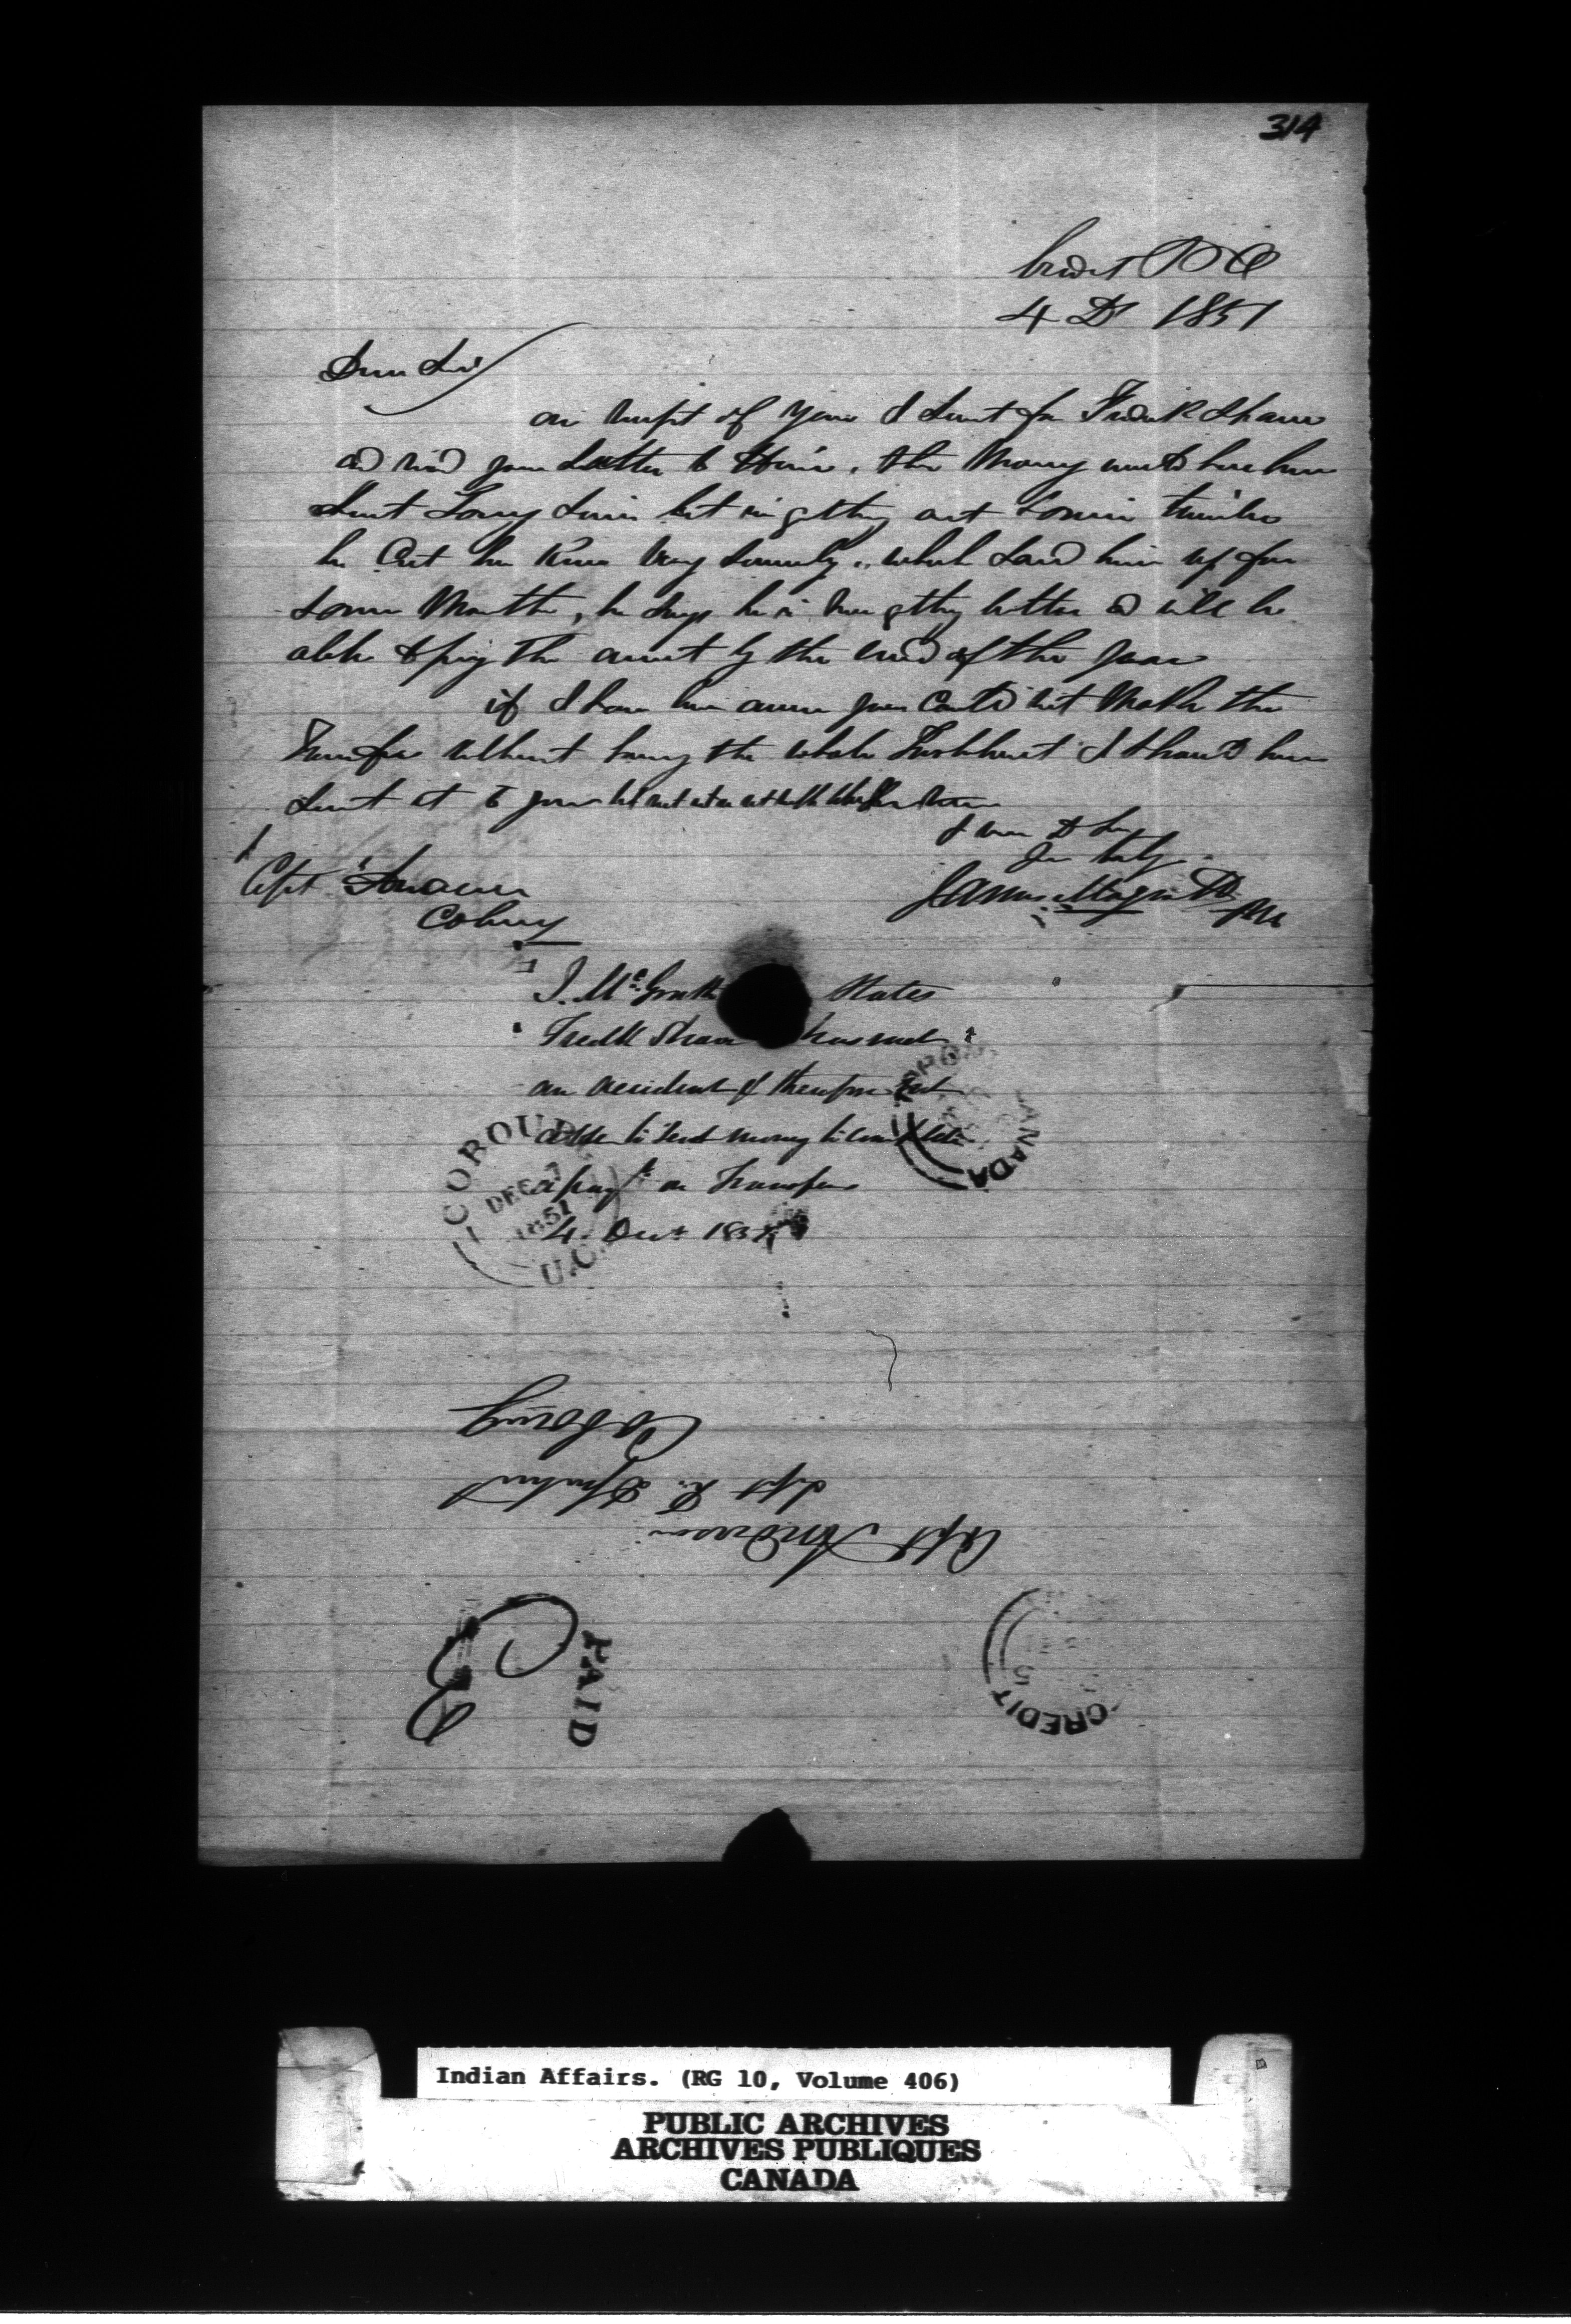 314
Credit PO
4 Dr 1851
Dear Sir
on receipt of yours I sent for Frederick Shaver
and read your Letter to Him, the Money would have been
sent Long Since but in getting out Some timber
he Cut his Knee Very Severely, which Laid him up for
Some Months, he says he is now getting better and will be
able to pay the amount by the end of the year
if I have been aware you Could not Make the
Transfer without having the whole I should have
sent it to you but
I am Dr Sir
Yrs truly
James Magrath
PM
Capt Anderson
Cobourg
J. McGrath States
Fredk Shaver has met
an accident & therefore not
able to send money to complete
a payt on Transfer
4 Decr 1851
COBOURG
DEC 7
1851
U.C.
CANADA
Capt Anderson
Supt I. Department
Cobourg
PAID
3
CREDIT
5
Indian Affairs. (RG 10, Volume 406)
PUBLIC ARCHIVES
ARCHIVES PUBLIQUES
CANADA